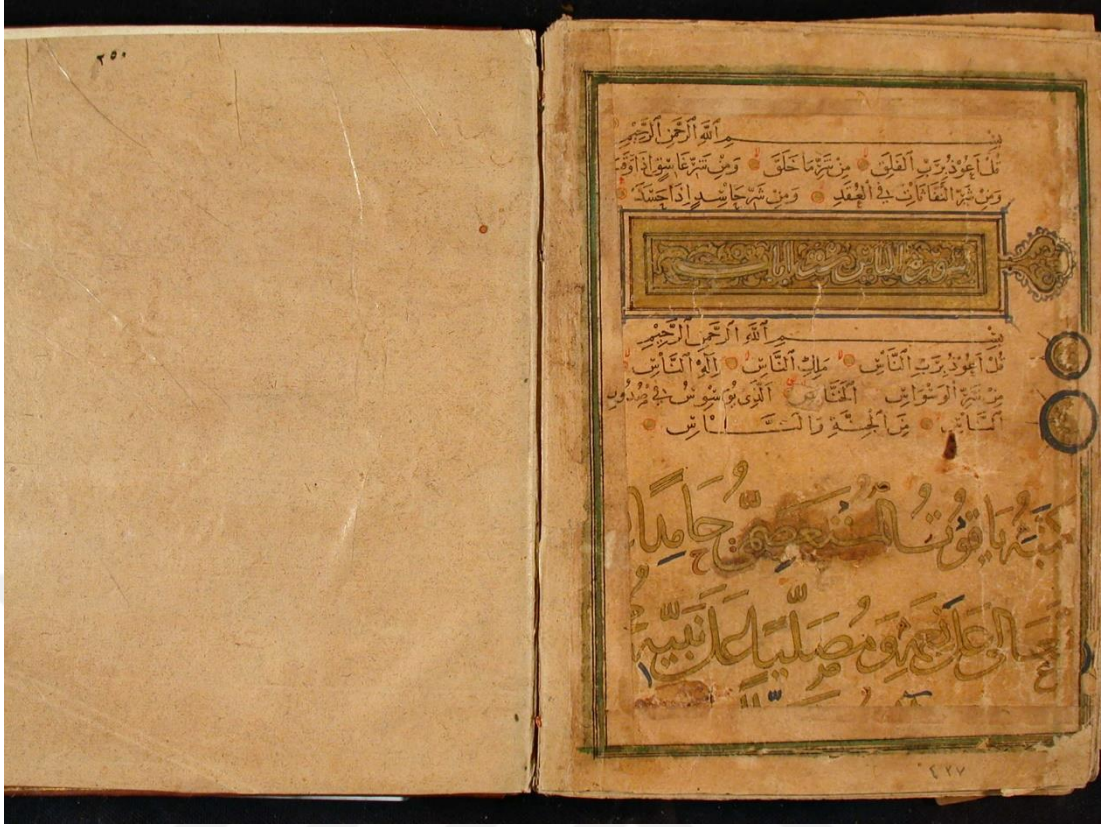 ٢٥٠
بِسْمِ ٱللَّهِ ٱلرَّحْمَٰنِ ٱلرَّحِيمِ
قُلْ أَعُوذُ بِرَبِّ الْفَلَقِ مِنْ شَرِّ مَا خَلَقَ وَمِنْ شَرِّ غَاسِقٍ إِذَا وَقَبَ
وَمِنْ شَرِّ النَّفَّاثَاتِ فِي الْعُقَدِ وَمِنْ شَرِّ حَاسِدٍ إِذَا حَسَدَ
سورة الناس ست ايات
بِسْمِ ٱللَّهِ ٱلرَّحْمَٰنِ ٱلرَّحِيمِ
قُلْ أَعُوذُ بِرَبِّ النَّاسِ مَلِكِ النَّاسِ إِلَٰهِ النَّاسِ
مِنْ شَرِّ الْوَسْوَاسِ الْخَنَّاسِ الَّذِي يُوَسْوِسُ فِي صُدُورِ
النَّاسِ مِنَ الْجِنَّةِ وَالنَّاسِ
كَتَبَهُ يَاقُوتُ الْمُسْتَعْصِمِيُّ حَامِدًا
تعالى عَلَى نِعَمِهِ وَمُصَلِّيًا عَلَى نَبِيِّهِ
٤٢٧